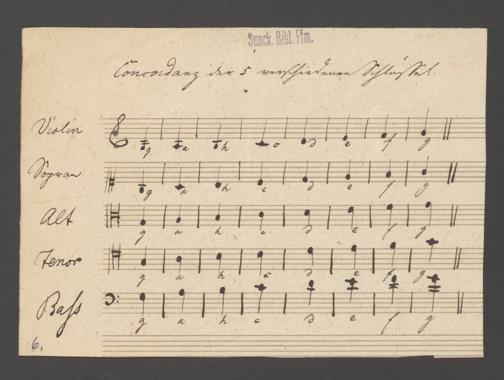 Senck. Bibl. Ffm.
Concordanz der 5 verschiedenen Schlüssel.
Violin
g a h c d e f g
Sopran
g a h c d e f g
Alt
g a h c d e f g
Tenor
g a h c d e f g
Bass
g a h c d e f g
6.